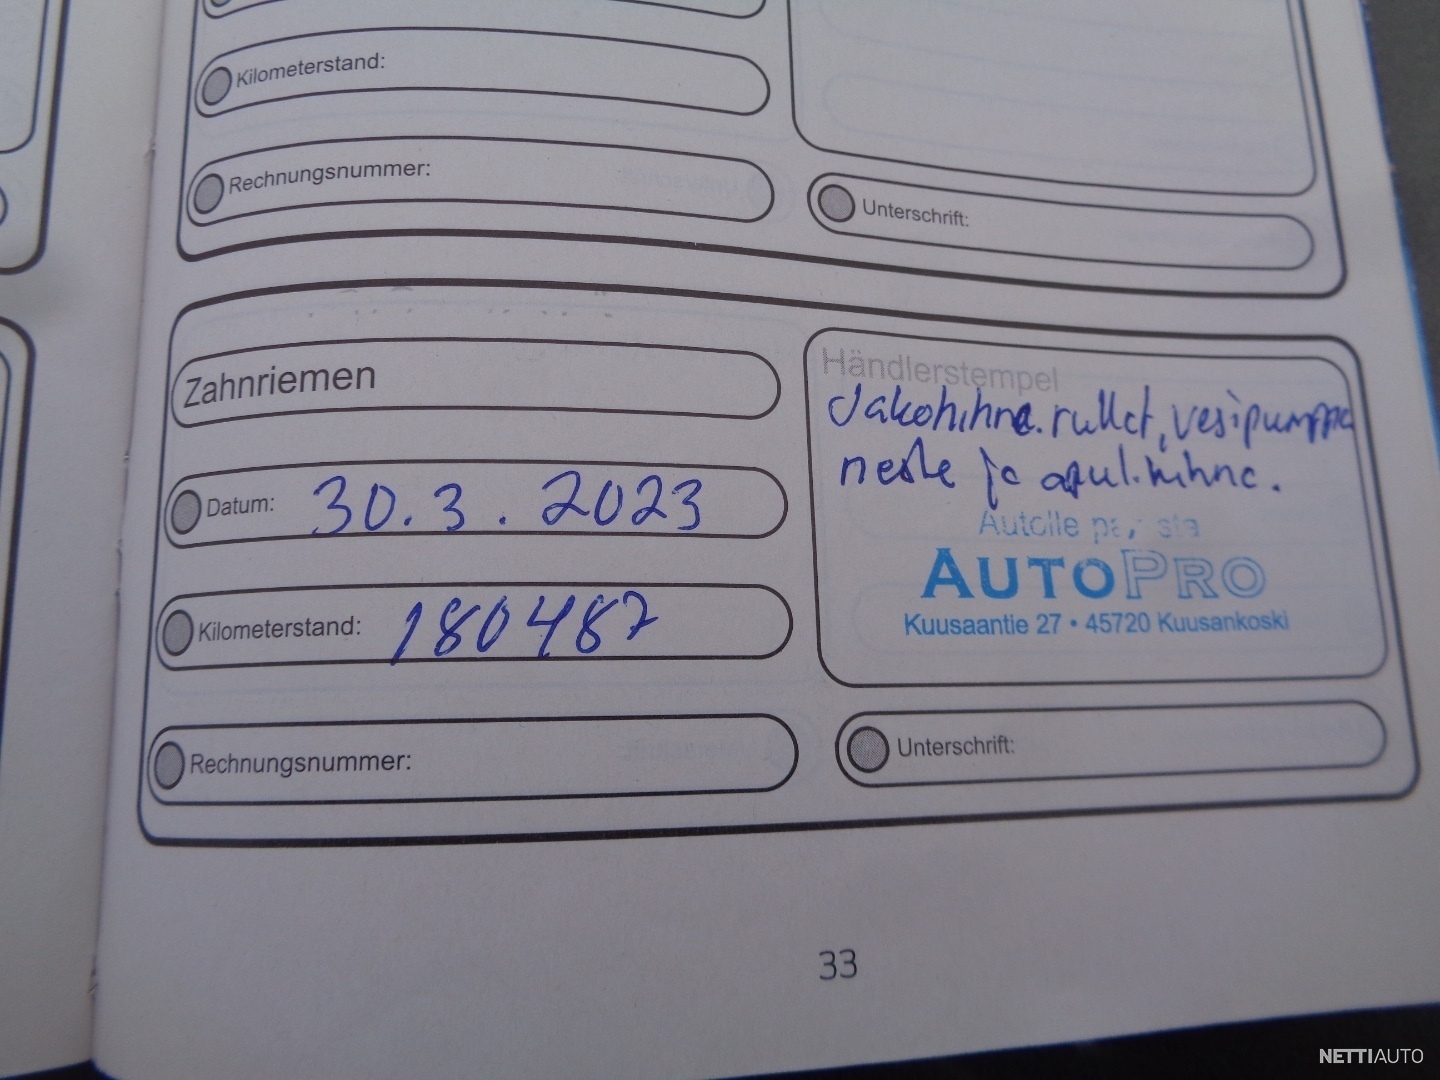 Kilometerstand:
Rechnungsnummer:
Unterschrift:
Zahnriemen
Händlerstempel
Jakohihna. rullat, vesipumppu
neste ja apul.hihna.
Datum: 30.3.2023
Autoille
AUTOPRO
Kuusaantie 27 • 45720 Kuusankoski
Kilometerstand: 180487
Rechnungsnummer:
Unterschrift:
33
NETTIAUTO